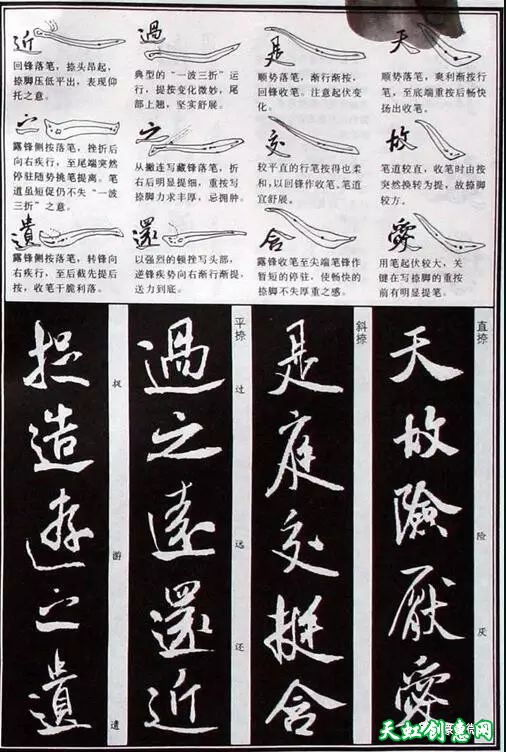 近
回锋落笔，捺头昂起，
捺脚压低平出，表现仰
托之意。
過
典型的“一波三折”运
行，提按变化微妙，尾
部上翘，坚实舒展。
是
顺势落笔，渐行渐按，
回锋收笔。注意起伏变
化。
天
顺势落笔，爽利渐按行
笔，至底端重按后畅快
扬出收笔。
之
露锋侧按落笔，挫折后
向右疾行，至尾端突然
停驻随势挑笔提离。笔
道虽短促仍不失“一波
三折”之意。
之
从撇连写藏锋落笔，折
右后明显提细，重按写
捺脚力求丰厚，忌拥肿。
交
较平直的行笔按得也柔
和，以回锋作收笔。笔道
宜舒展。
故
笔道较直，收笔时由按
突然换转为提，故捺脚
较方。
遺
露锋侧按落笔，转锋向
右疾行，至后截先提后
按，收笔干脆利落。
還
以强烈的顿挫写头部，
逆锋疾势向右渐行渐提，
送力到底。
含
露锋收笔至尖端笔锋作
暂短的停驻，使畅快的
捺脚不失厚重之感。
愛
用笔起伏较大，关
键在写捺脚的重按
前有明显提笔。
直捺
险
厌
天故險厭愛
斜捺
是庭交挺含
平捺
过
远
还
過之遠還近
捉
游
遗
捉造遊之遺
天虹创意网